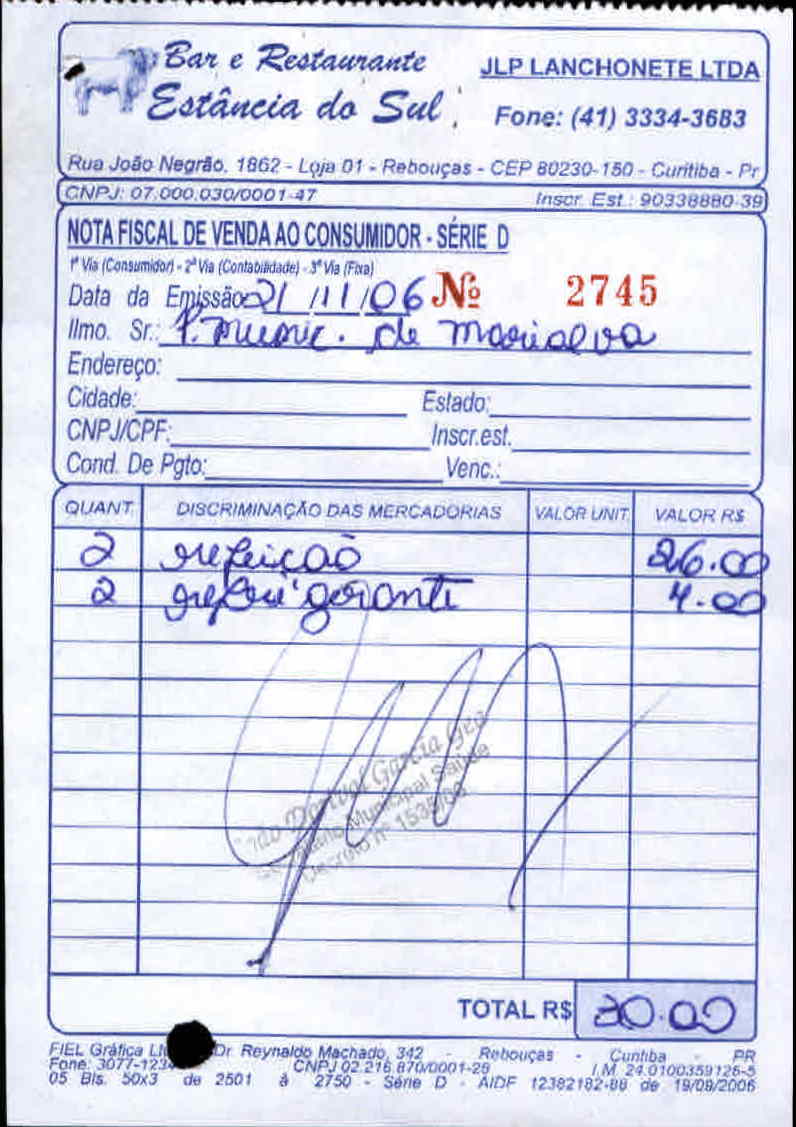 Bar e Restaurante
Estância do Sul
JLP LANCHONETE LTDA
Fone: (41) 3334-3683
Rua João Negrão, 1862 - Loja 01 - Rebouças - CEP 80230-150 - Curitiba - Pr
CNPJ: 07.000.030/0001-47 Inscr. Est.: 90338880-39
NOTA FISCAL DE VENDA AO CONSUMIDOR - SÉRIE D
1ª Via (Consumidor) - 2ª Via (Contabilidade) - 3ª Via (Fixa)
Data da Emissão 21/11/06 Nº 2745
Ilmo. Sr.: P. Munic. de Marialva
Endereço:
Cidade: Estado:
CNPJ/CPF: Inscr.est.
Cond. De Pgto: Venc.:
QUANT. DISCRIMINAÇÃO DAS MERCADORIAS VALOR UNIT. VALOR R$
2 refeição 26.00
2 refri gerante 4.00
Garcia
Municipal Saúde
Decreto nº
TOTAL R$ 30.00
FIEL Gráfica Dr. Reynaldo Machado, 342 - Rebouças - Curitiba - PR
Fone: 3077-123 CNPJ 02.216.870/0001-28 I.M. 24.0100359126-5
05 Bls. 50x3 de 2501 à 2750 - Série D - AIDF 12382182-88 de 19/09/2006